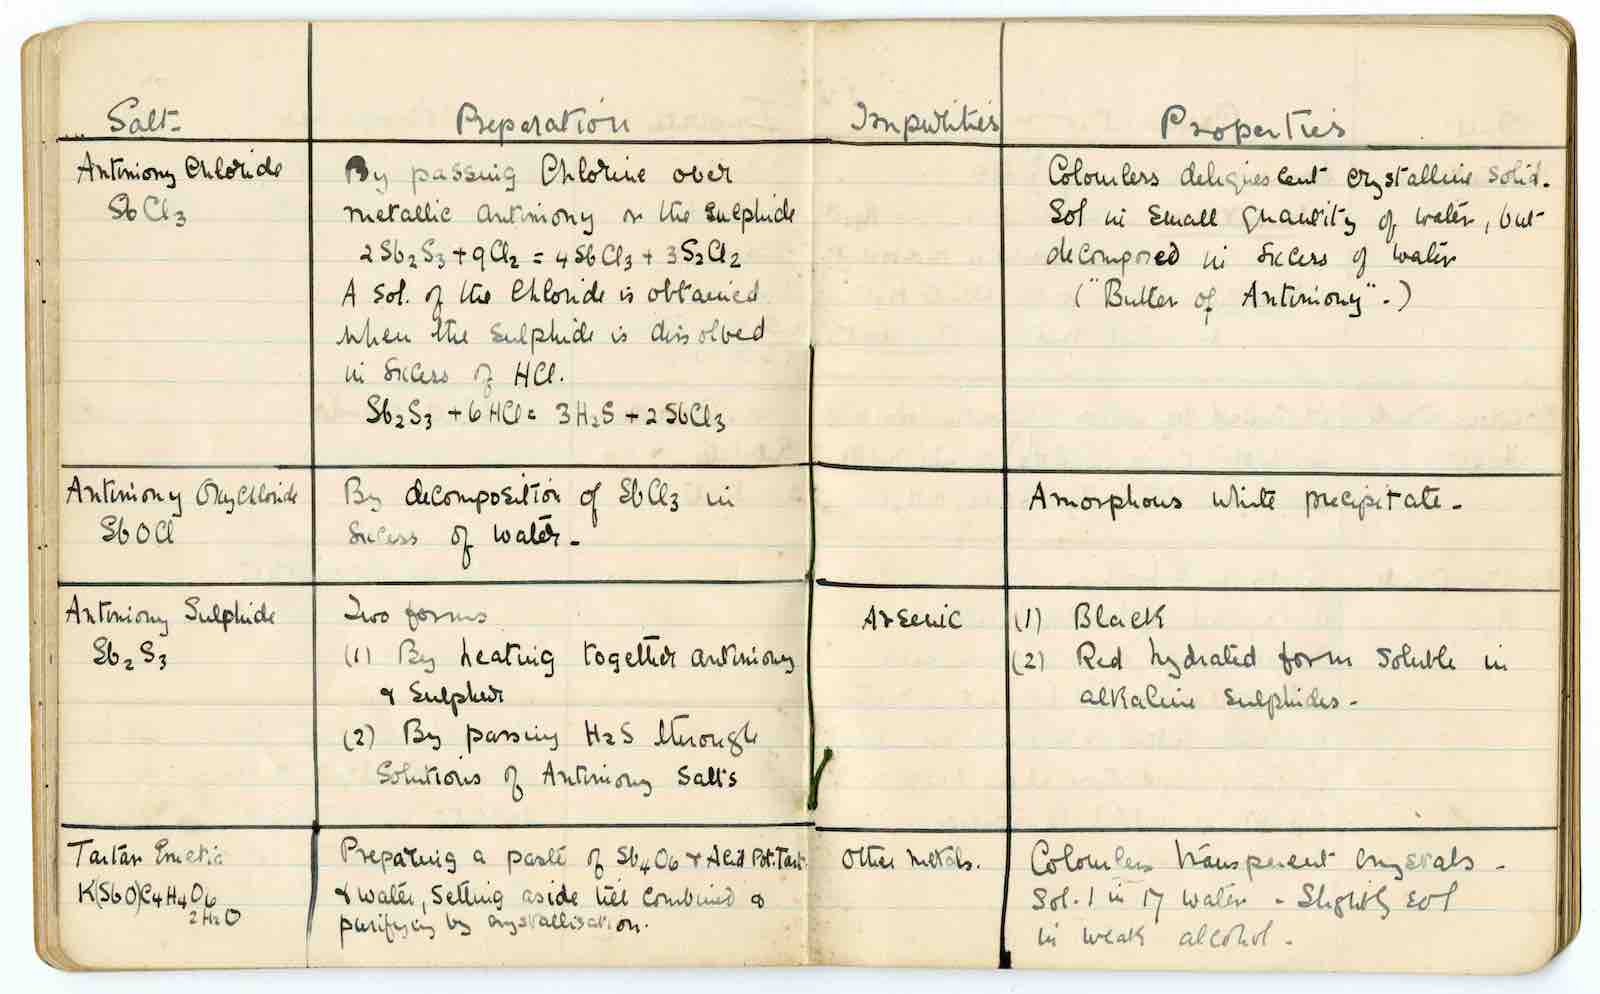 Salt- Preparation Impurities Properties
Antimony Chloride
SbCl₃
By passing Chlorine over
metallic antimony or the sulphide
2Sb₂S₃ + 9Cl₂ = 4SbCl₃ + 3S₂Cl₂
A sol. of the Chloride is obtained
when the sulphide is dissolved
in excess of HCl.
Sb₂S₃ + 6HCl = 3H₂S + 2SbCl₃
Colourless deliquescent crystalline solid.
Sol in small quantity of water, but
decomposed in excess of water
("Butter of Antimony".)
Antimony Oxychloride
SbOCl
By decomposition of SbCl₃ in
excess of water-
Amorphous white precipitate-
Antimony Sulphide
Sb₂S₃
Two forms
(1) By heating together antimony
& Sulphur
(2) By passing H₂S through
Solutions of Antimony Salts
Arsenic
(1) Black
(2) Red hydrated form soluble in
alkaline sulphides-
Tartar Emetic
K(SbO)C₄H₄O₆
2H₂O
Preparing a paste of Sb₄O₆ & Acid Pot. Tart.
& water, setting aside till combined &
purifying by crystallisation.
Other metals.
Colourless transparent crystals-
Sol. 1 in 17 water - Slightly sol
in weak alcohol-